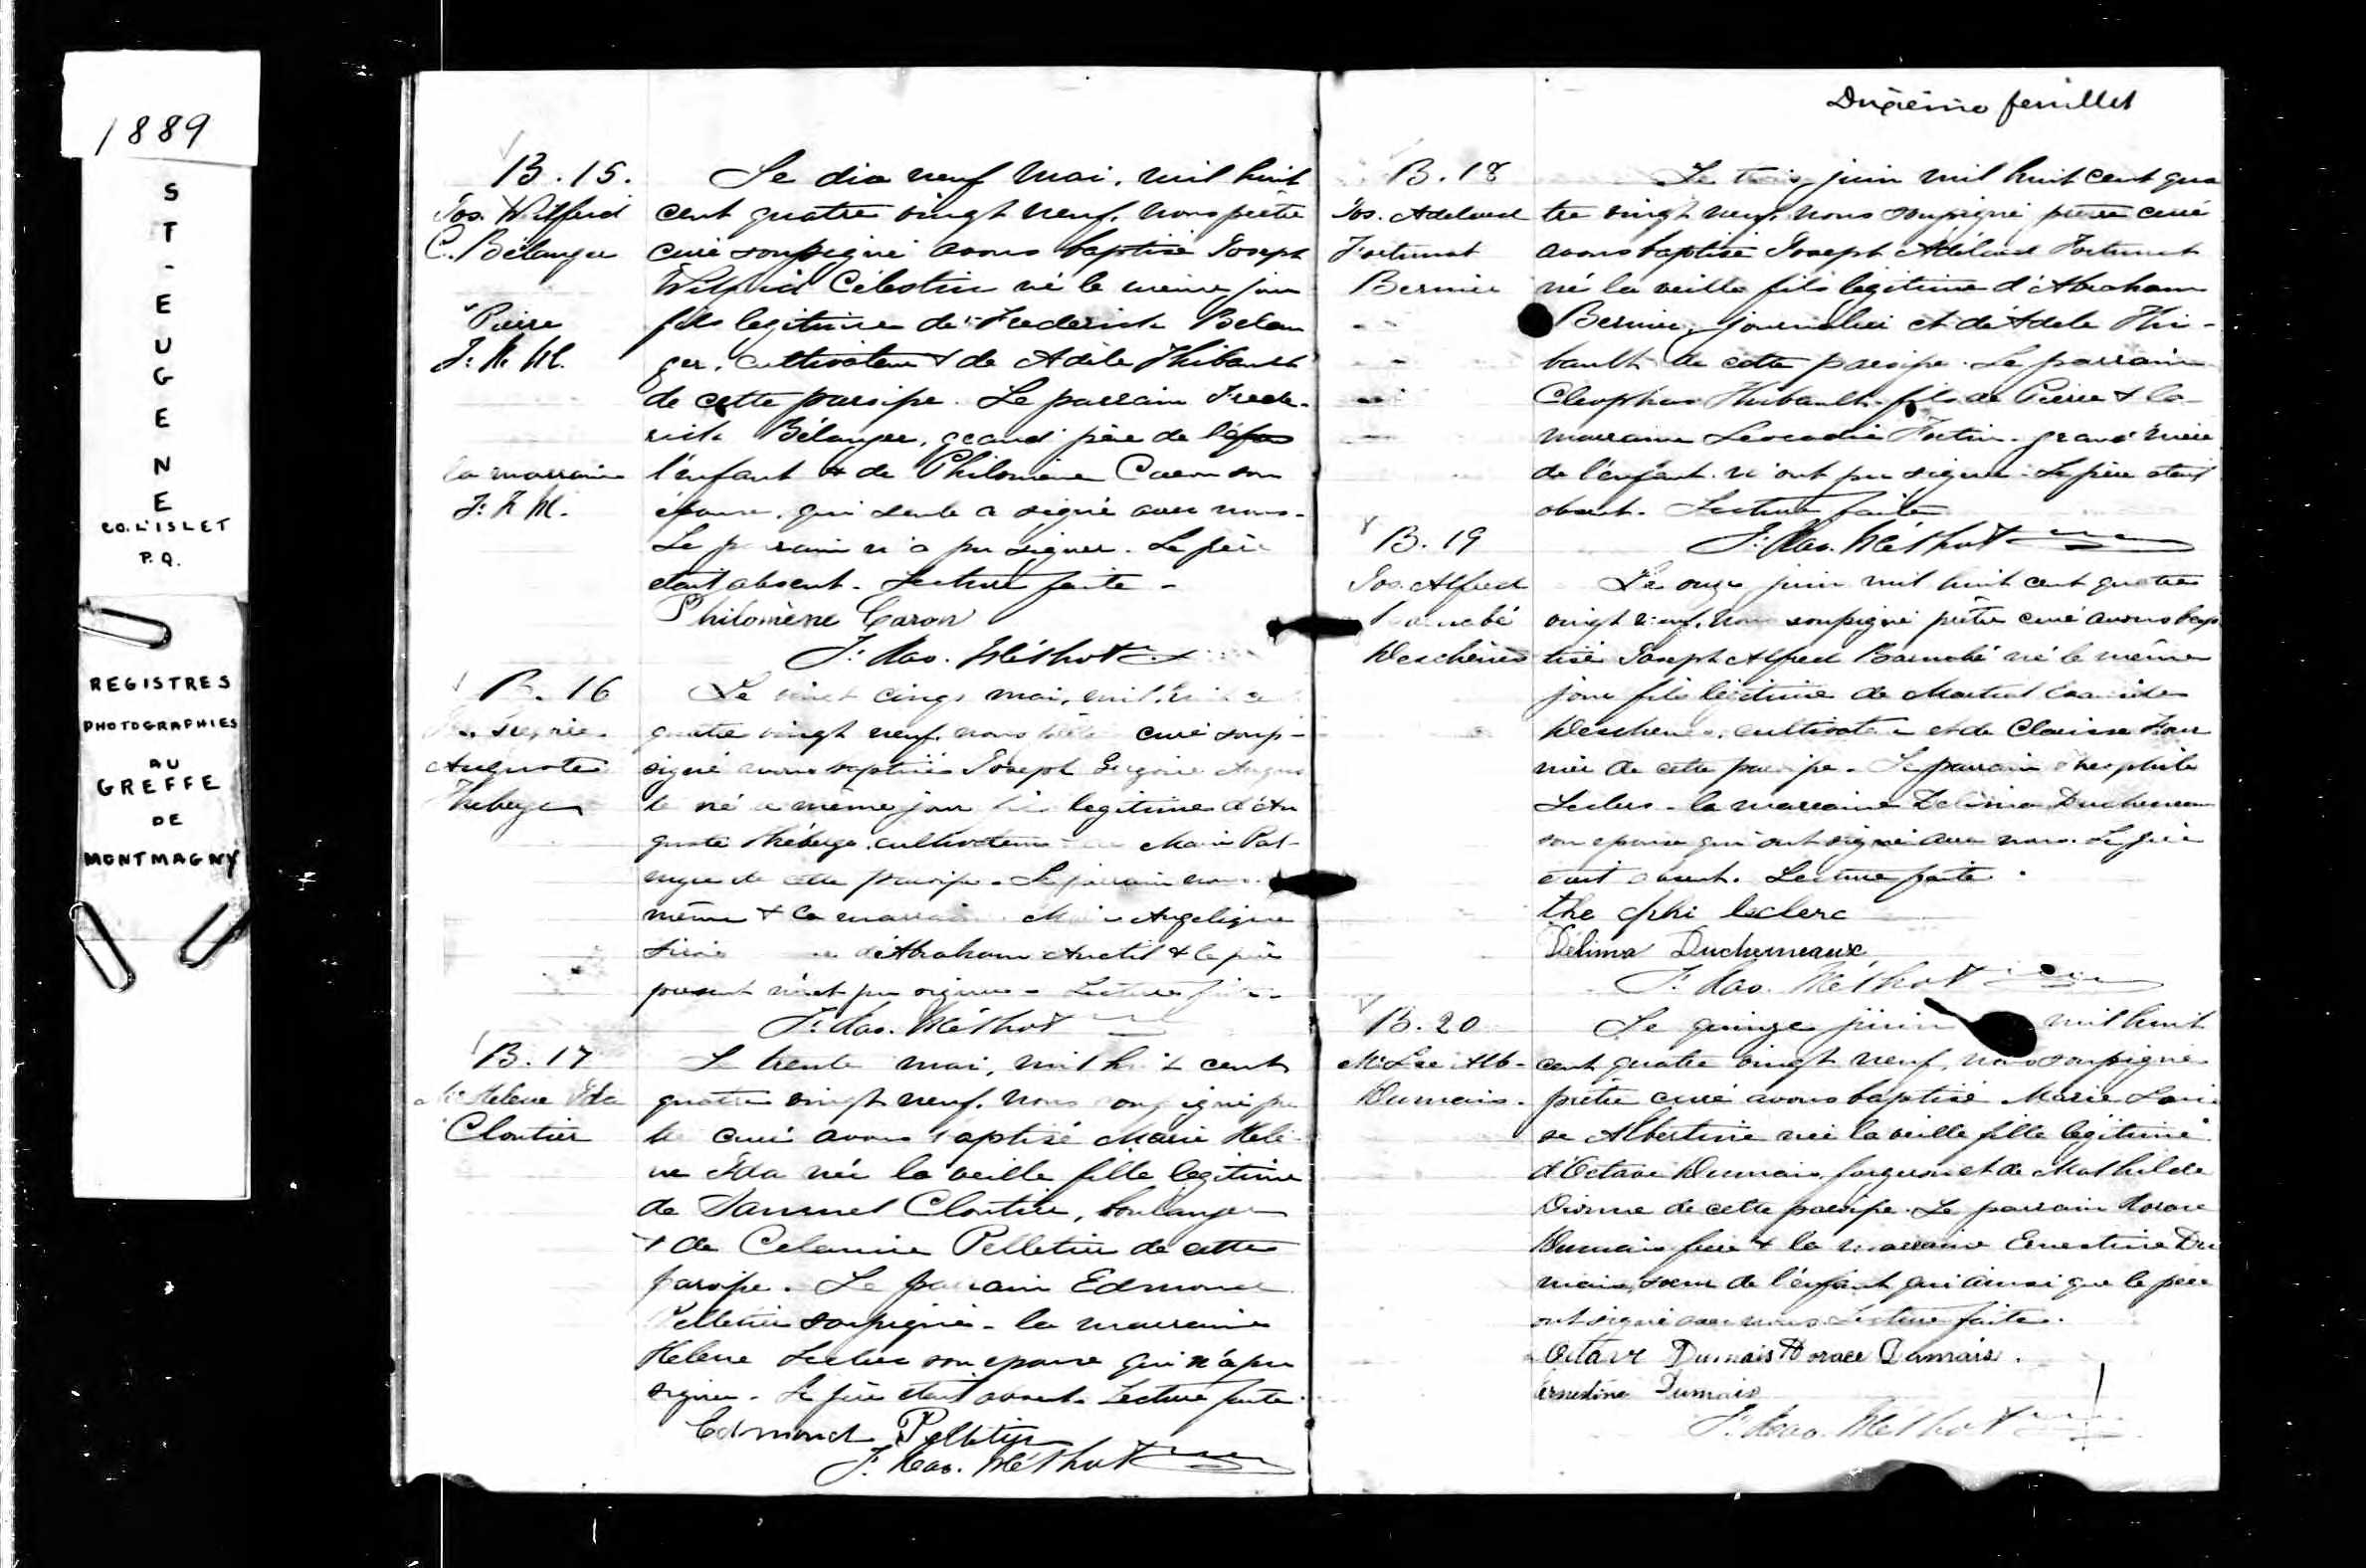 1889
ST-EUGENE
CO. L'ISLET
P.Q.
REGISTRES
PHOTOGRAPHIES
AU
GREFFE
DE
MONTMAGNY
B. 15.
Jos. Wilfrid
C. Bélanger
Pierre
F. R. M.
la marraine
F. R. M.
Le dix neuf mai, mil huit
cent quatre vingt neuf, nous prêtre
curé soussigné avons baptisé Joseph
Wilfrid Célestin né le même jour
fils legitime de Frederick Belan
ger, cultivateur & de Adèle Thibault
de cette paroisse. Le parrain Frede-
rick Bélanger, grand père de
l'enfant & de Philomène Caron son
épouse, qui seule a signé avec nous.
Le parrain n'a pu signer. Le père
etait absent. Lecture faite -
Philomène Caron
F. Rao. Méthot
B. 16
Auguste
Theberge
Le vingt cinq mai, mil huit
quatre vingt neuf, nous curé sous-
signé avons baptisé Joseph Gregoire Augus
te né le même jour fils legitime d'Au
guste Théberge, cultivateur Marie Pel-
de cette paroisse. Le parrain nous
même & la marraine Angelique
d'Abraham Anctil & le père
present n'ont pu signer - Lecture faite -
F. Rao. Méthot
B. 17
Me Helene Ida
Cloutier
Le trente mai, mil huit cent
quatre vingt neuf, nous soussigné prê
tre curé avons baptisé Marie Helè
ne Ida née la veille fille legitime
de Samuel Cloutier, boulanger
& de Celanire Pelletier de cette
paroisse. Le parrain Edmond
Pelletier soussigné - la marraine
Helene Leclerc son epouse qui n'a pu
signer. Le père etait absent. Lecture faite.
Edmond Pelletier
F. Rao. Méthot
Duxième feuillet
B. 18
Jos. Adelard
Fortunat
Bernier
Le trois juin mil huit cent qua
tre vingt neuf, nous soussigné prêtre curé
avons baptisé Joseph Adélard Fortunat
né la veille fils légitime d'Abraham
Bernier, journalier et de Adele Thi-
bault de cette paroisse. Le parrain
Cleophas Thibault fils de Pierre & la
marraine Leocadie Fortin grand'mère
de l'enfant n'ont pu signer. Le père etait
absent. Lecture faite
F. Rao. Méthot
B. 19
Jos. Alfred
Barnabé
Deschènes
Le onze juin mil huit cent quatre
vingt neuf, nous soussigné prêtre curé avons bap
tisé Joseph Alfred Barnabé né le même
jour fils légitime de Martial
Deschenes, cultivateur et de Clarisse Four
nier de cette paroisse. Le parrain Theophile
Leclerc - la marraine Delima Duchesneau
son epouse qui ont signé avec nous. Le père
était absent. Lecture faite.
the ophi leclerc
Délima Duchesneaux
F. Rao. Méthot
B. 20
M. Lse Alb-
Dumais.
Le quinze juin mil huit
cent quatre vingt neuf, nous soussigné
prêtre curé avons baptisé Marie Loui
se Albertine née la veille fille légitime
d'Octave Dumais forgeron et de Mathilde
Dionne de cette paroisse. Le parrain Horace
Dumais frère & la marraine Ernestine Du
mais, soeur de l'enfant qui ainsi que le père
ont signé avec nous. Lecture faite.
Octave Dumais Horace Dumais.
Ernestine Dumais
F. Rao. Méthot